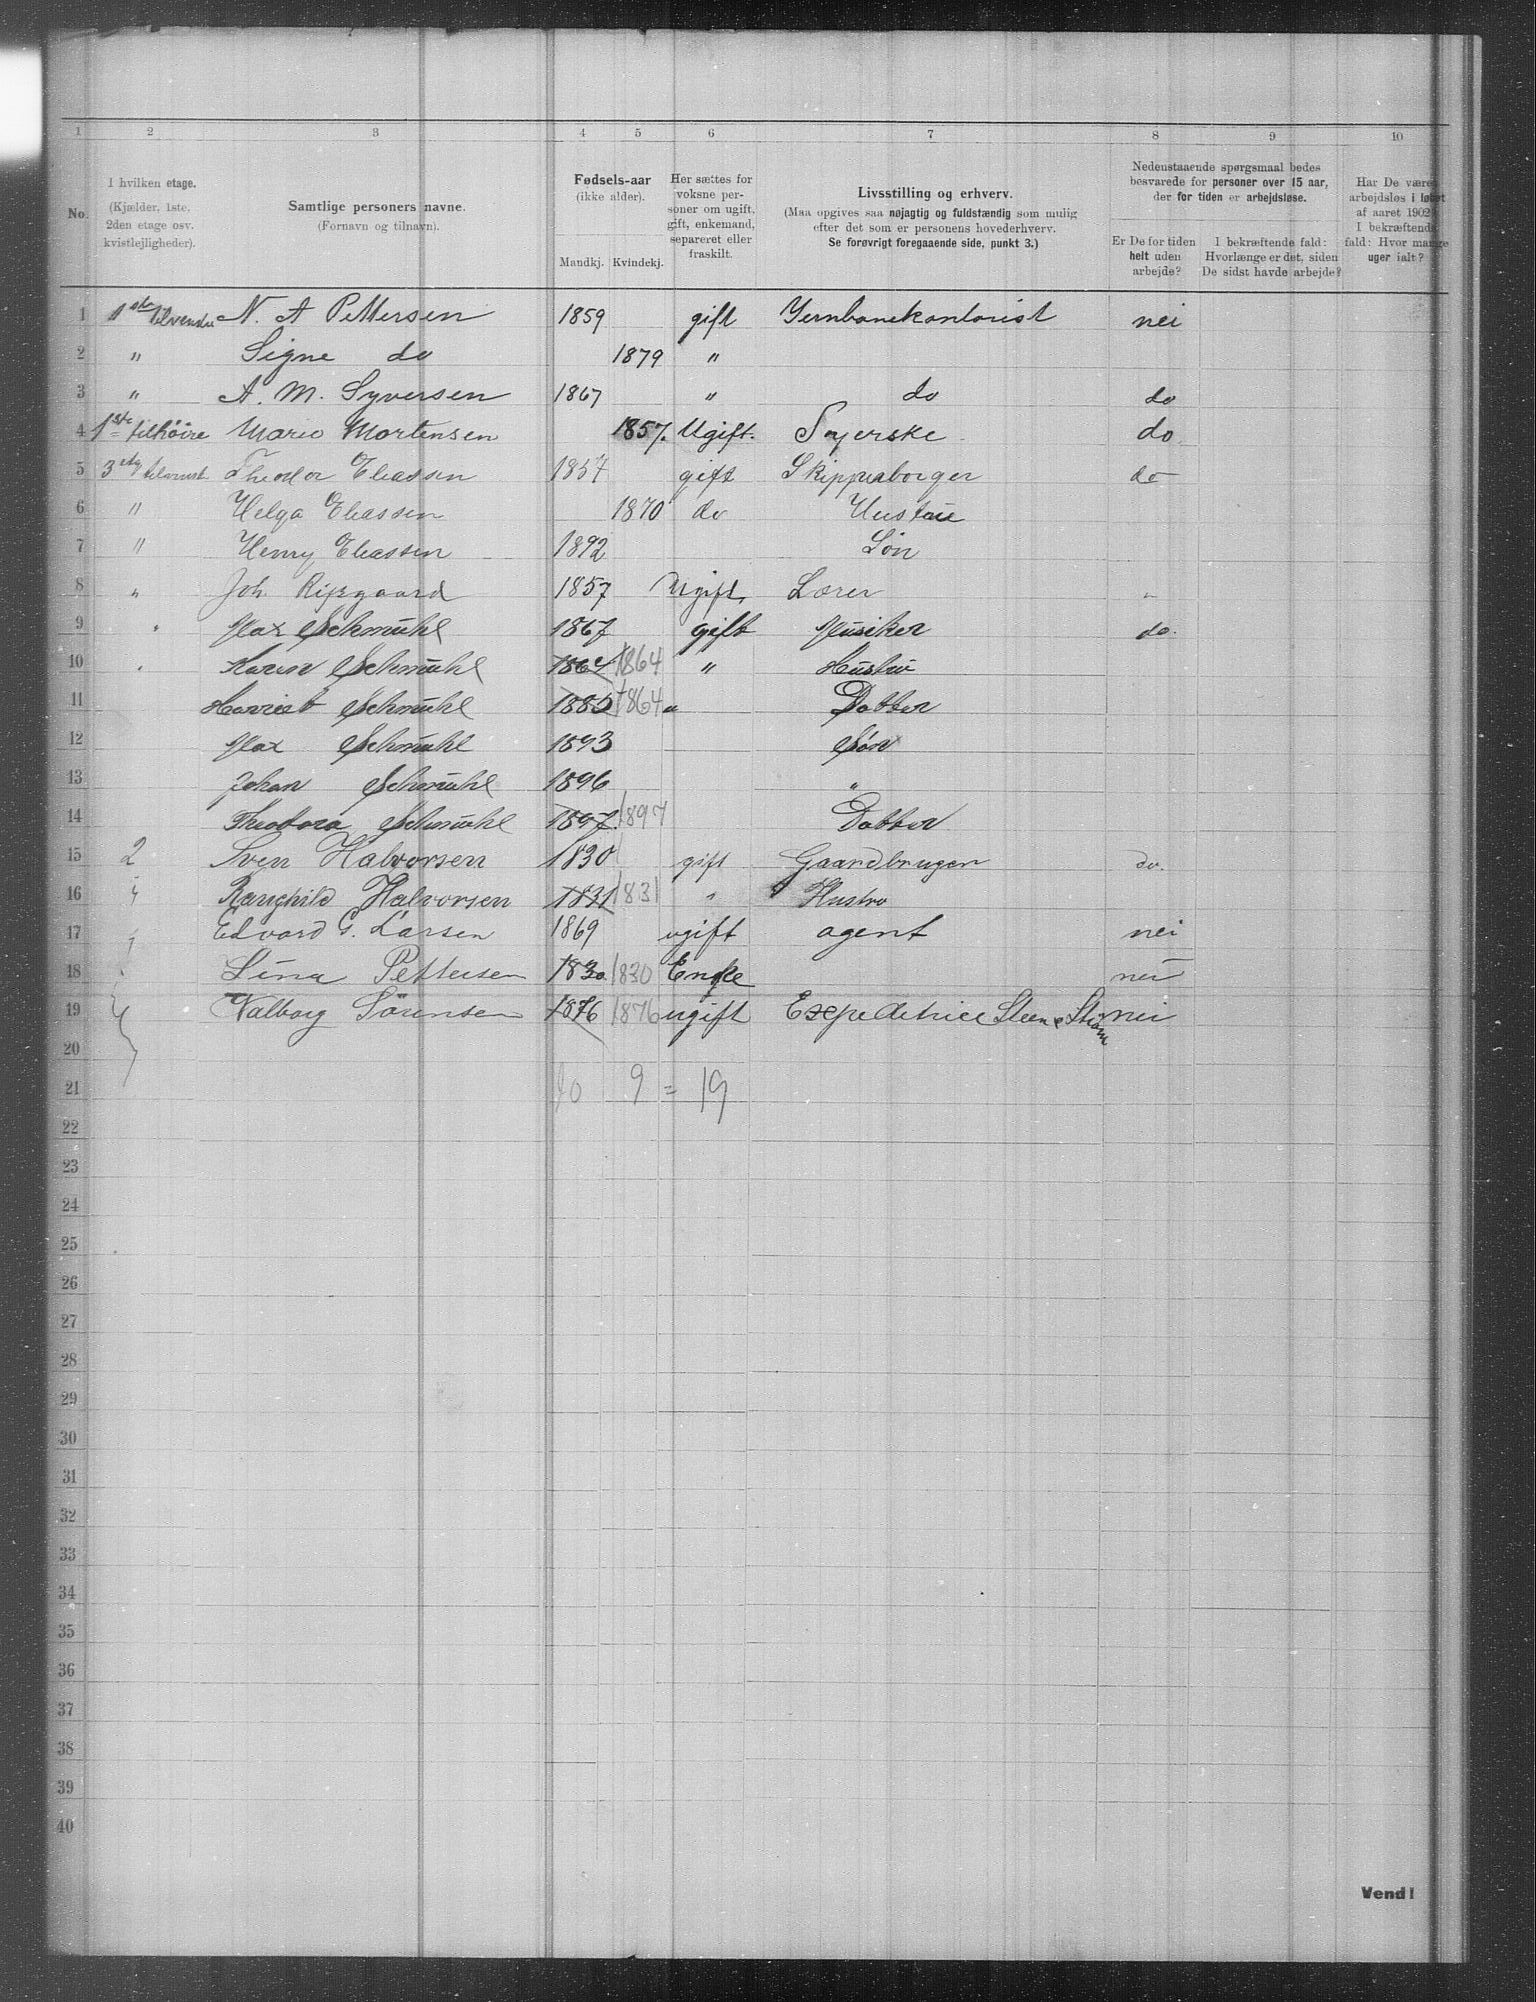 1 2 3 4 5 6 7 8 9 10
No.
I hvilken etage.
(Kjælder, 1ste.
2den etage osv.
kvistlejligheder).
Samtlige personers navne.
(Fornavn og tilnavn).
Fødsels-aar
(ikke alder).
Mandkj. Kvindekj.
Her sættes for
voksne per-
soner om ugift,
gift, enkemand,
separeret eller
fraskilt.
Livsstilling og erhverv.
(Maa opgives saa nøjagtig og fuldstændig som mulig
efter det som er personens hovederhverv.
Se forøvrigt foregaaende side, punkt 3.)
Nedenstaaende spørgsmaal bedes
besvarede for personer over 15 aar,
der for tiden er arbejdsløse.
Er De for tiden
helt uden
arbejde?
I bekræftende fald:
Hvorlænge er det, siden
De sidst havde arbejde?
Har De været
arbejdsløs i løbet
af aaret 1902?
I bekræftende
fald: Hvor mange
uger ialt?
1 1ste tilvenstre N. A Pettersen 1859 gift Jernbanekontorist nei
2 " Signe do 1879 "
3 " A. M. Syversen 1867 " do do
4 1ste tilhöire Marie Mortensen 1857. Ugift. Syerske do
5 3 etg tilvenst Theodor Eliassen 1857 gift Skipperborger do
6 " Helga Eliassen 1870 do Hustru
7 " Henry Eliassen 1892 Søn
8 " Joh. 1857 Ugift. Lærer "
9 " Max Schmühl 1867 gift Musiker do.
10 " Karen Schmühl 1864 1864 " Hustru
11 Harriet Schmühl 1885 1864 " Datter
12 Max Schmühl 1893 Søn
13 Johan Schmühl 1896 "
14 Theodora Schmühl 1897. 1897 Datter
15 2 Sven Halvorsen 1830 gift Gaardbruger do.
16 " Ranghild Halvorsen 1831 1831 " Hustro
17 Edvard G. Larsen 1869 ugift agent nei
18 Lina Pettersen 1830 1830 Enke nei
19 Valborg Sörensen 1876 1876 ugift Expeditrice Steen & Strøm nei
20
21 10 9 = 19
22
23
24
25
26
27
28
29
30
31
32
33
34
35
36
37
38
39
40
Vend!